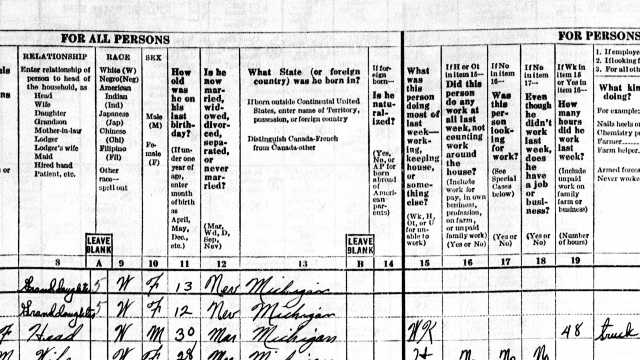 FOR ALL PERSONS
FOR PERSONS
RELATIONSHIP
Enter relationship of
person to head of
the household, as
Head
Wife
Daughter
Grandson
Mother-in-law
Lodger
Lodger's wife
Maid
Hired hand
Patient, etc.
8
LEAVE
BLANK
A
RACE
White (W)
Negro(Neg)
American
Indian
(Ind)
Japanese
(Jap)
Chinese
(Chi)
Filipino
(Fil)
Other
race—
spell out
9
SEX
Male
(M)
Fe-
male
(F)
10
How
old
was
he on
his
last
birth-
day?
(If un-
der one
year of
age,
enter
month
of birth
as
April,
May,
Dec.,
etc.)
11
Is he
now
mar-
ried,
wid-
owed,
divorc-
ed,
sepa-
rated,
or
never
mar-
ried?
(Mar,
Wd, D,
Sep,
Nev)
12
What State (or foreign
country) was he born in?
If born outside Continental United
States, enter name of Territory,
possession, or foreign country
Distinguish Canada-French
from Canada-other
13
LEAVE
BLANK
B
If for-
eign
born—
Is he
natu-
ral-
ized?
(Yes,
No, or
AP for
born
abroad
of
Ameri-
can
par-
ents)
14
What
was
this
person
doing
most of
last
week—
work-
ing,
keeping
house,
or
some-
thing
else?
(Wk, H,
Ot, or
U for un-
able to
work)
15
If H or Ot
in item 15—
Did this
person
do any
work at
all last
week, not
counting
work
around
the
house?
(Include
work for
pay, in own
business,
profession,
on farm,
or unpaid
family work)
(Yes or No)
16
If No
in item
16—
Was
this
per-
son
look-
ing
for
work?
(See
Special
Cases
below)
(Yes or
No)
17
If No in
item
17—
Even
though
he didn't
work last
week,
does
he
have
a job
or
busi-
ness?
(Yes or
No)
18
If Wk in
item 15
or Yes in
item 16—
How
many
hours
did he
work
last
week?
(Include
unpaid
work on
family
farm or
business)
(Number
of hours)
19
1. If employe
2. If looking f
3. For all othe
What kin
doing
For example:
Nails heels or
Chemistry p
Farmer
Farm helper
Armed forces
Never worke
Granddaughter 5 W F 13 Nev Michigan
Granddaughter 5 W F 12 Nev Michigan
Head W M 30 Mar Michigan WK 48 truck